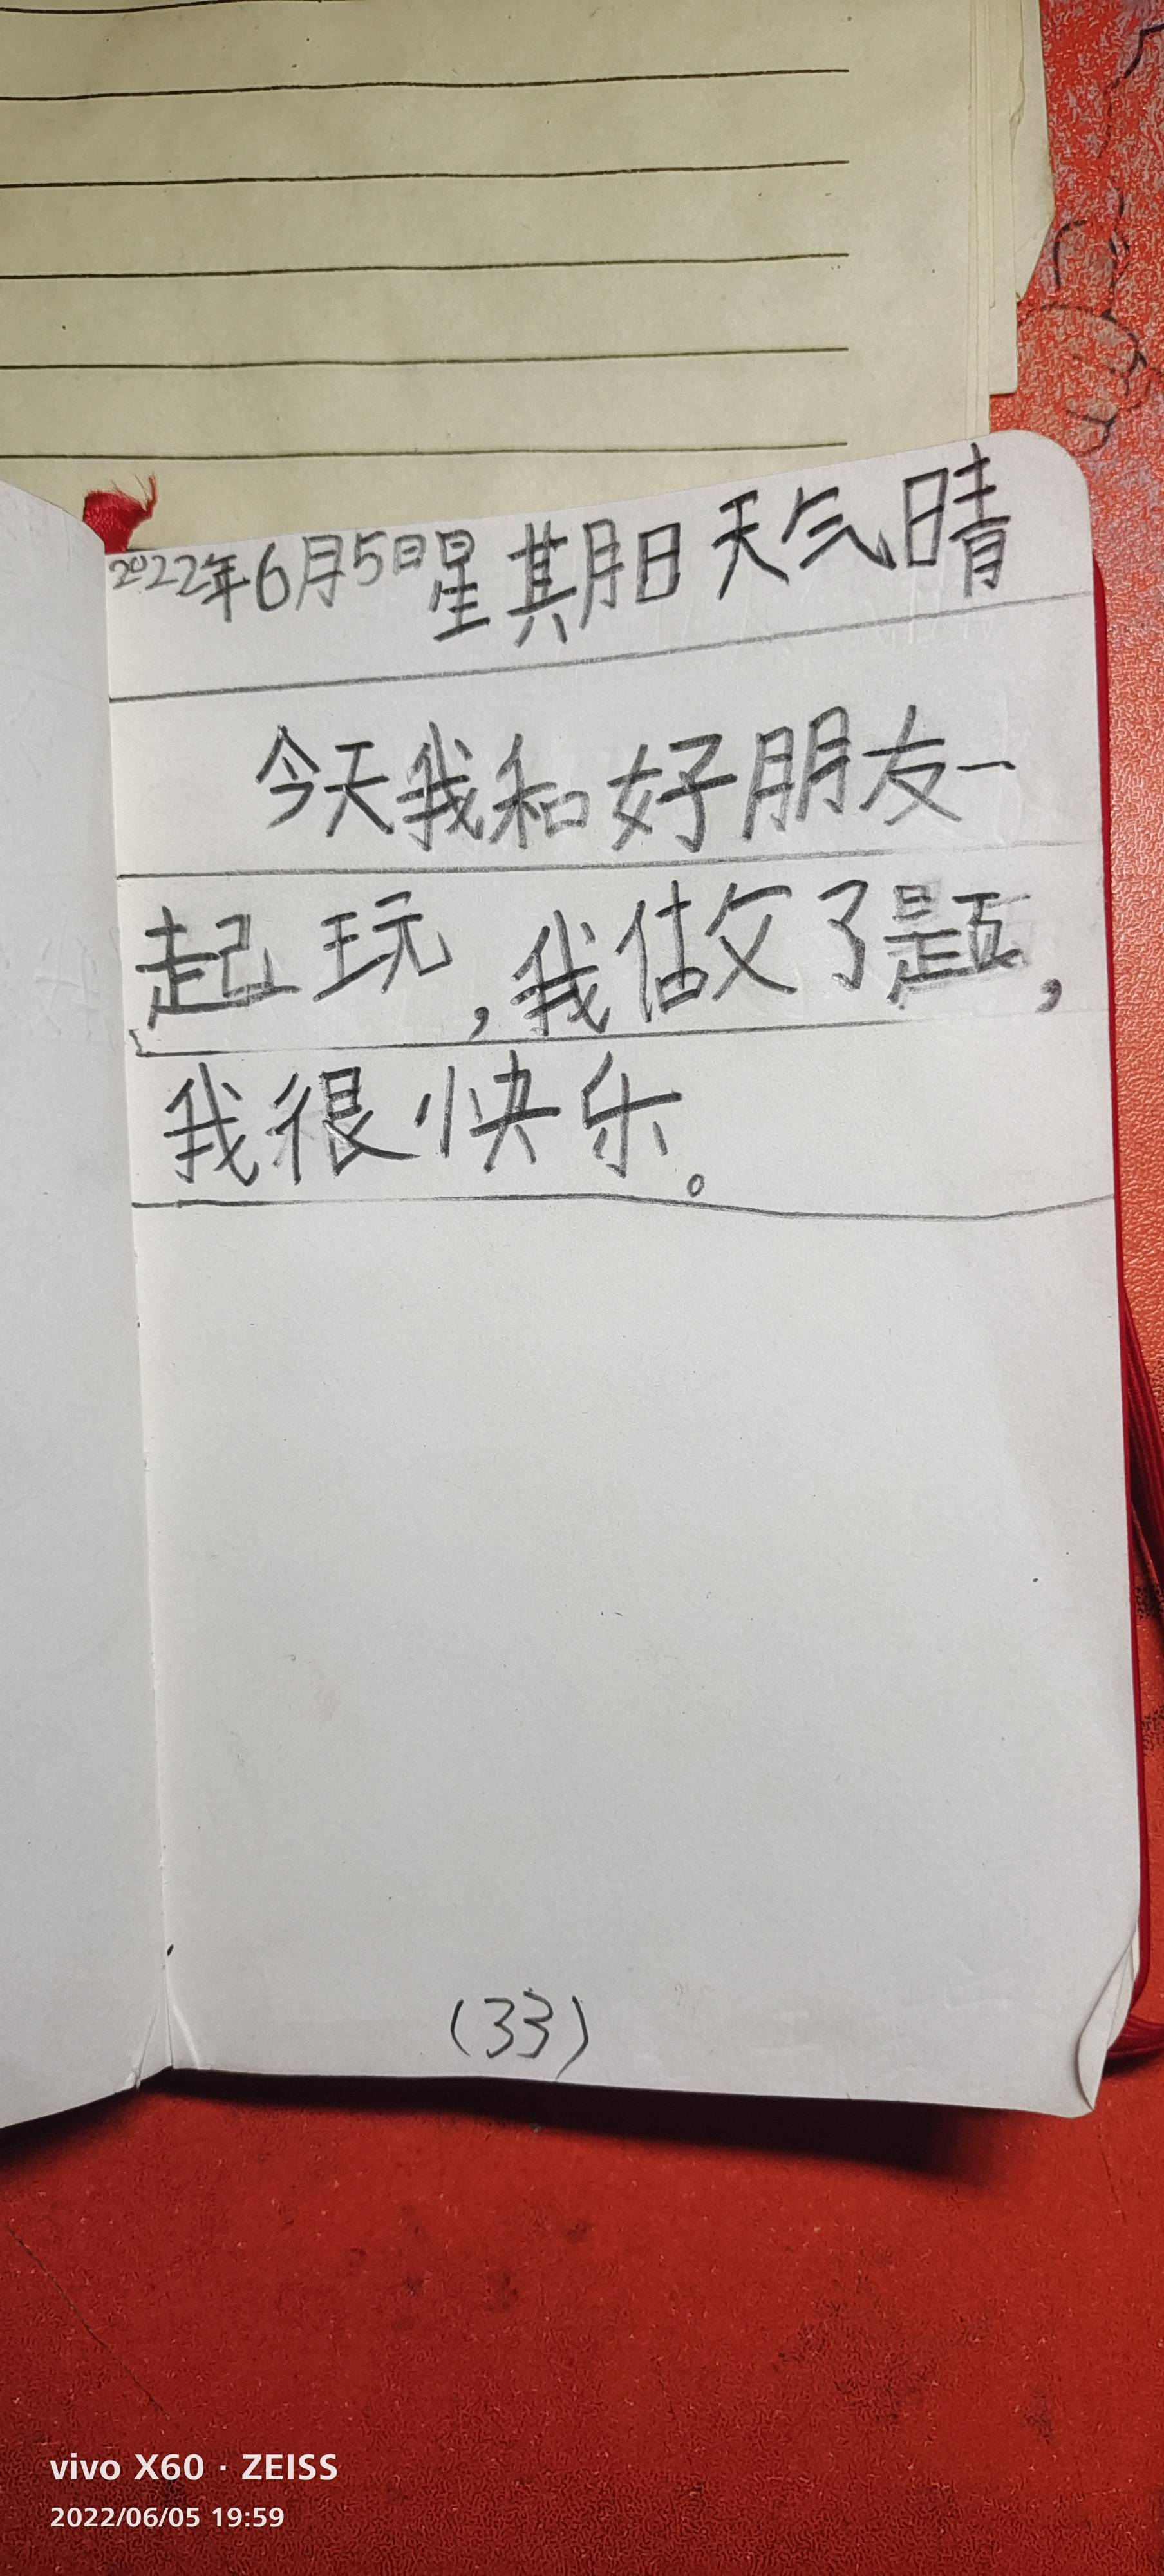 2022年6月5日星期日天气晴
今天我和好朋友一
起玩，我做了题，
我很快乐。
(33)
vivo X60 · ZEISS
2022/06/05 19:59